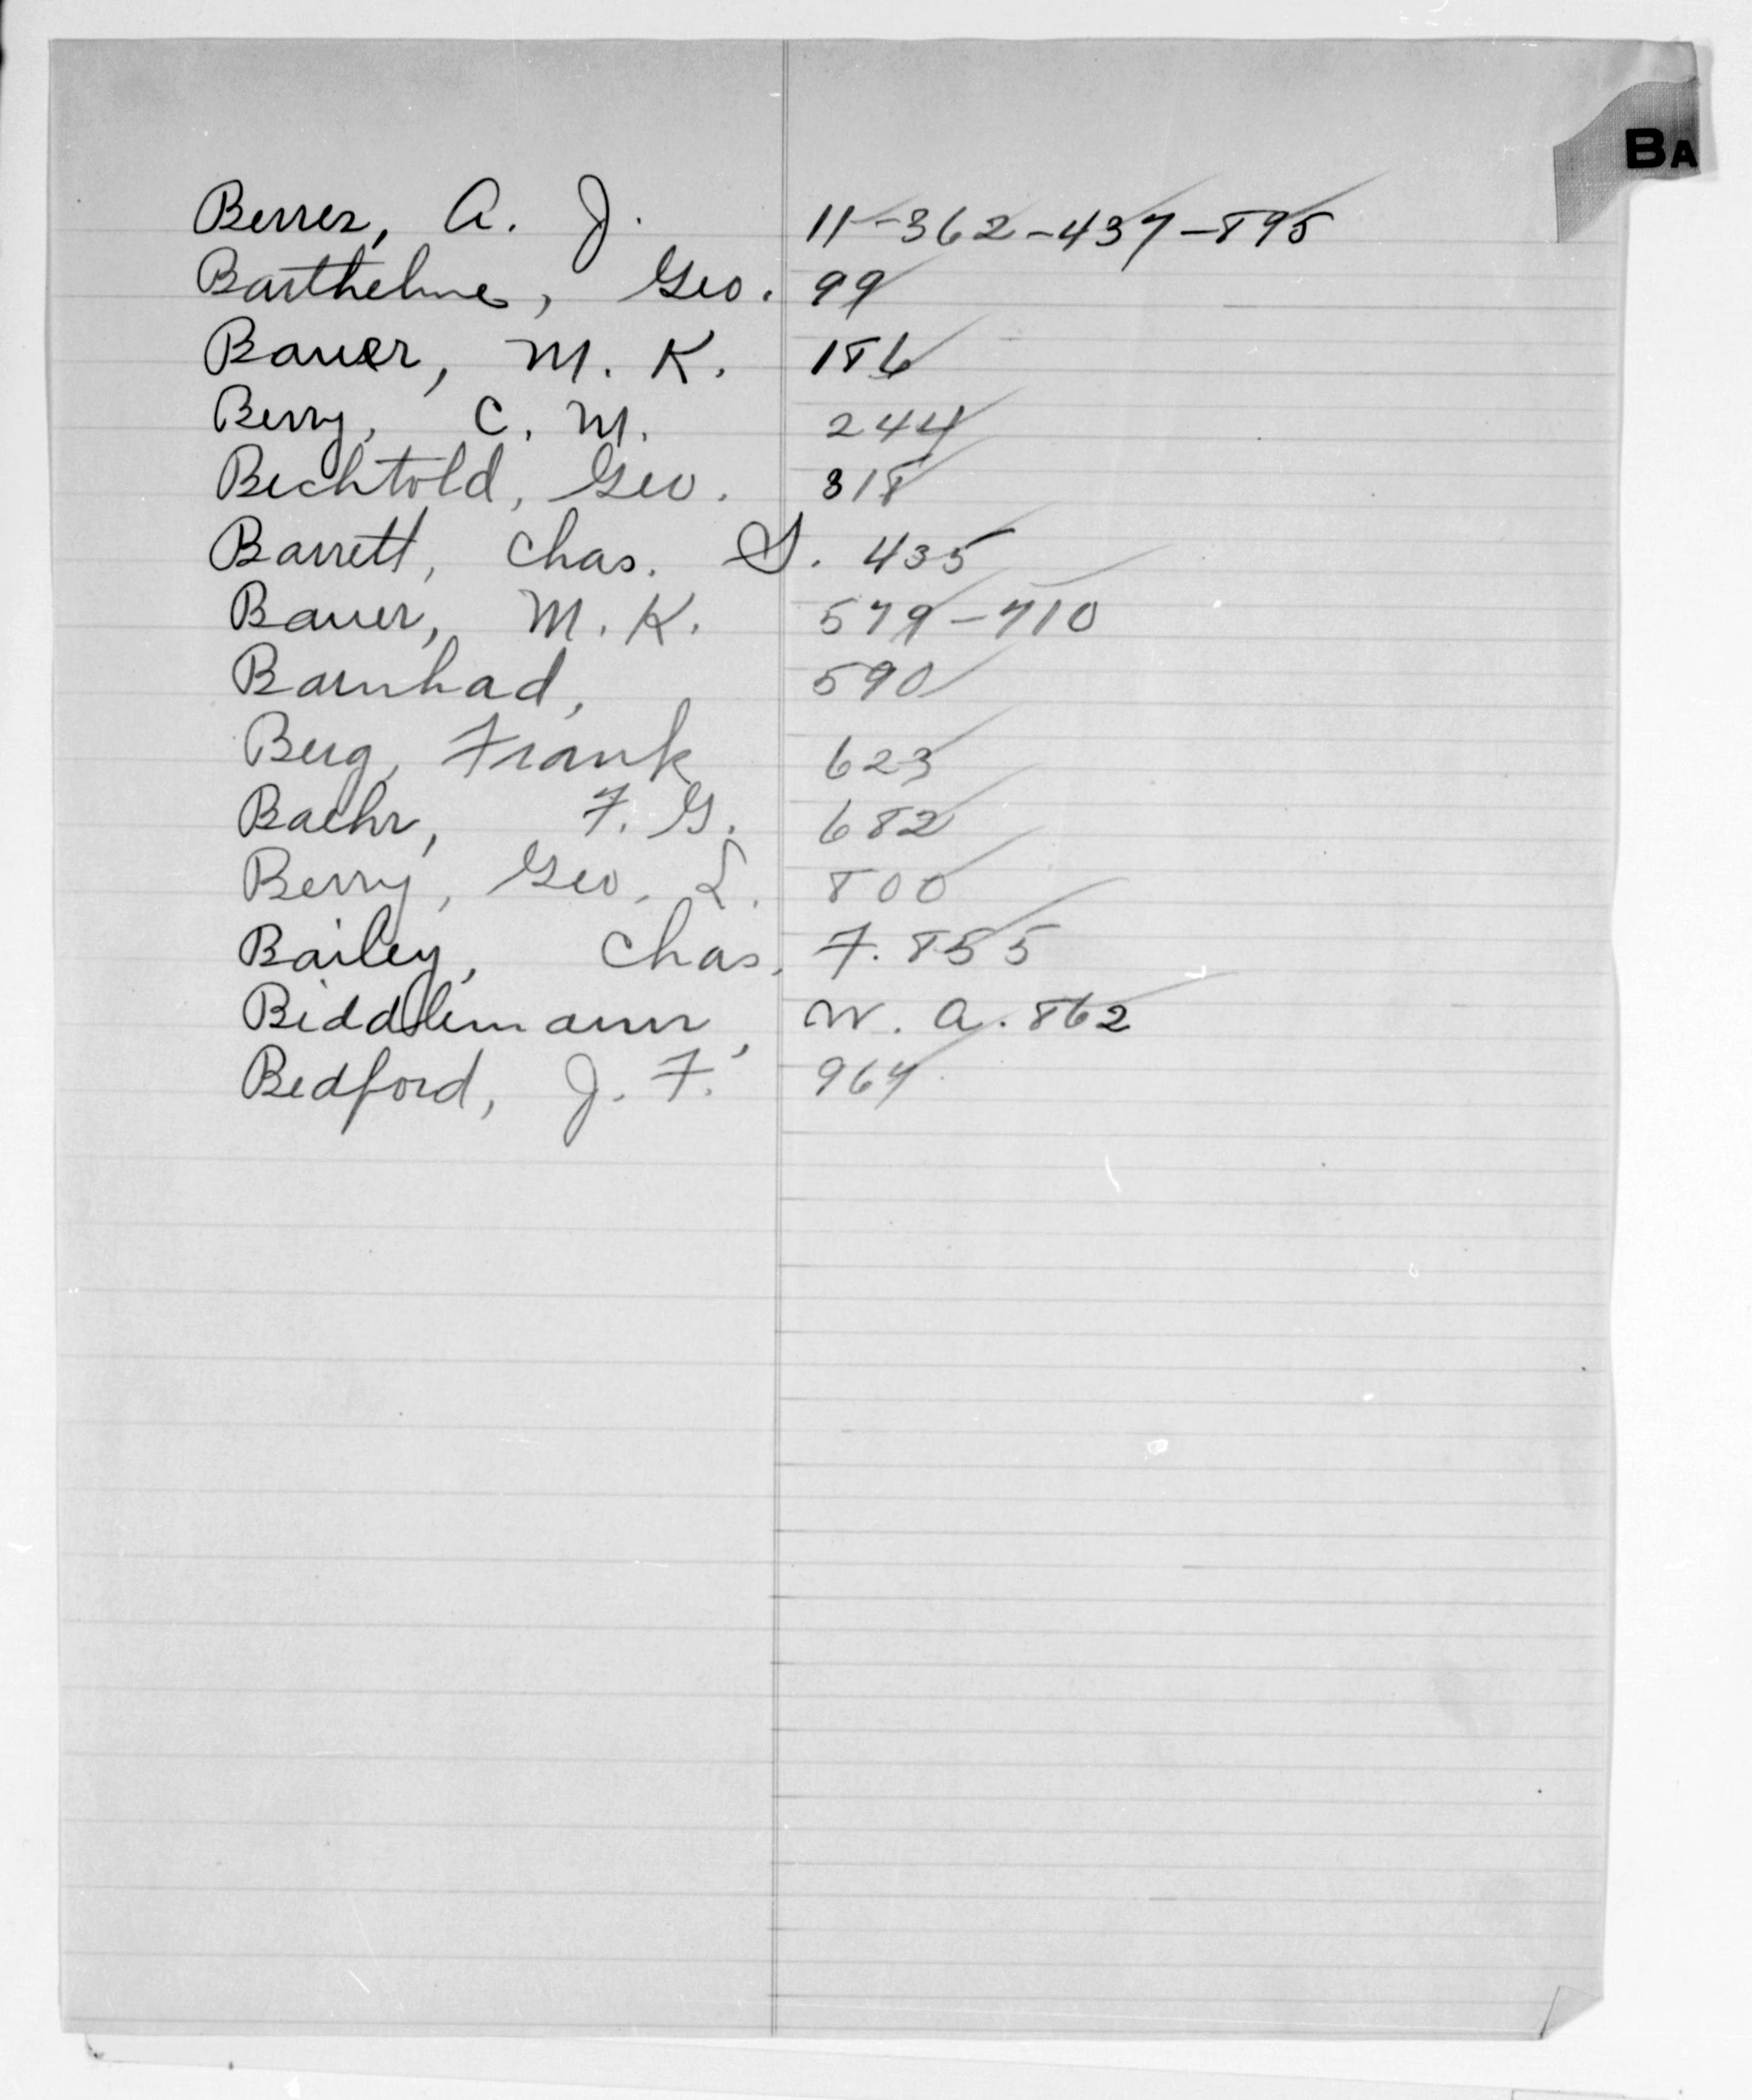 BA
Berres, A. J. 11-362-437-895
Barthelme, Geo. 99
Bauer, M. K. 186
Berry, C. M. 244
Bechtold, Geo. 318
Barrett, Chas. S. 435
Bauer, M. K. 579-710
Barnhad, 590
Berg, Frank 623
Baehr, F. G. 682
Berry, Geo. L. 800
Bailey, Chas. F. 855
Biddlemann, W. A. 862
Bedford, J. F. 967